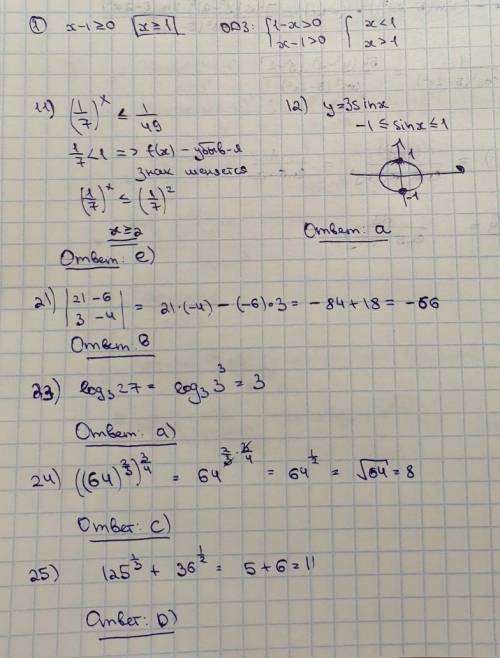 ① x-1≥0 x≥1 ОДЗ: { 1-x>0 { x<1
x-1>0 x>1
11) (1/7)^x ≤ 1/49
1/7<1 => f(x) - убыв-я
знак меняется
(1/7)^x ≤ (1/7)^2
x≥2
Ответ: е)
12) y=3sinx
-1≤sinx≤1
1
-1
Ответ: а
21) |21 -6| = 21·(-4) - (-6)·3 = -84+18 = -66
|3 -4|
Ответ: в
23) log₃27 = log₃3³ = 3
Ответ: а)
24) ((64)^(2/3))^(3/4) = 64^(2/3 · 3/4) = 64^(1/2) = √64 = 8
Ответ: с)
25) 125^(1/3) + 36^(1/2) = 5+6=11
Ответ: D)